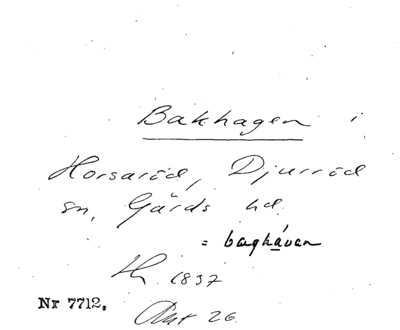 Bakhagen i
Horsaröd, Djurröd
sn, Gärds hd.
= bagháven
1837
Nr 7712. Akt 26.